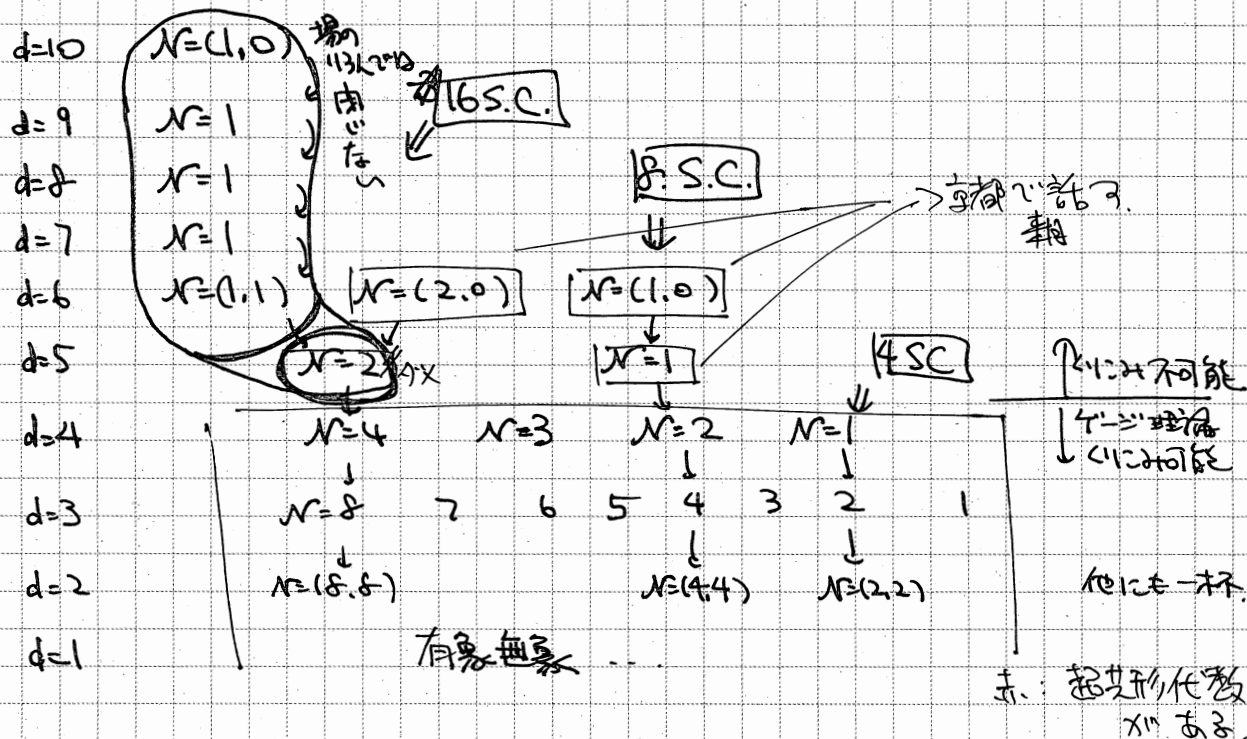 d=10 N=(1,0) 場の
d=9 N=1 16 S.C.
d=8 N=1 8. S.C.
同じでない
d=7 N=1 →京都で話す
d=6 N=(1,1) N=(2,0) N=(1,0)
d=5 N=2 N=1 4 SC ↑くりこみ不可能
d=4 N=4 N=3 N=2 N=1 ↓ゲージ理論
くりこみ可能
d=3 N=8 7 6 5 4 3 2 1
d=2 N=(8,8) N=(4,4) N=(2,2) 他にも一杯.
d=1 有象無象 ...
赤: 超共形代数
がある.